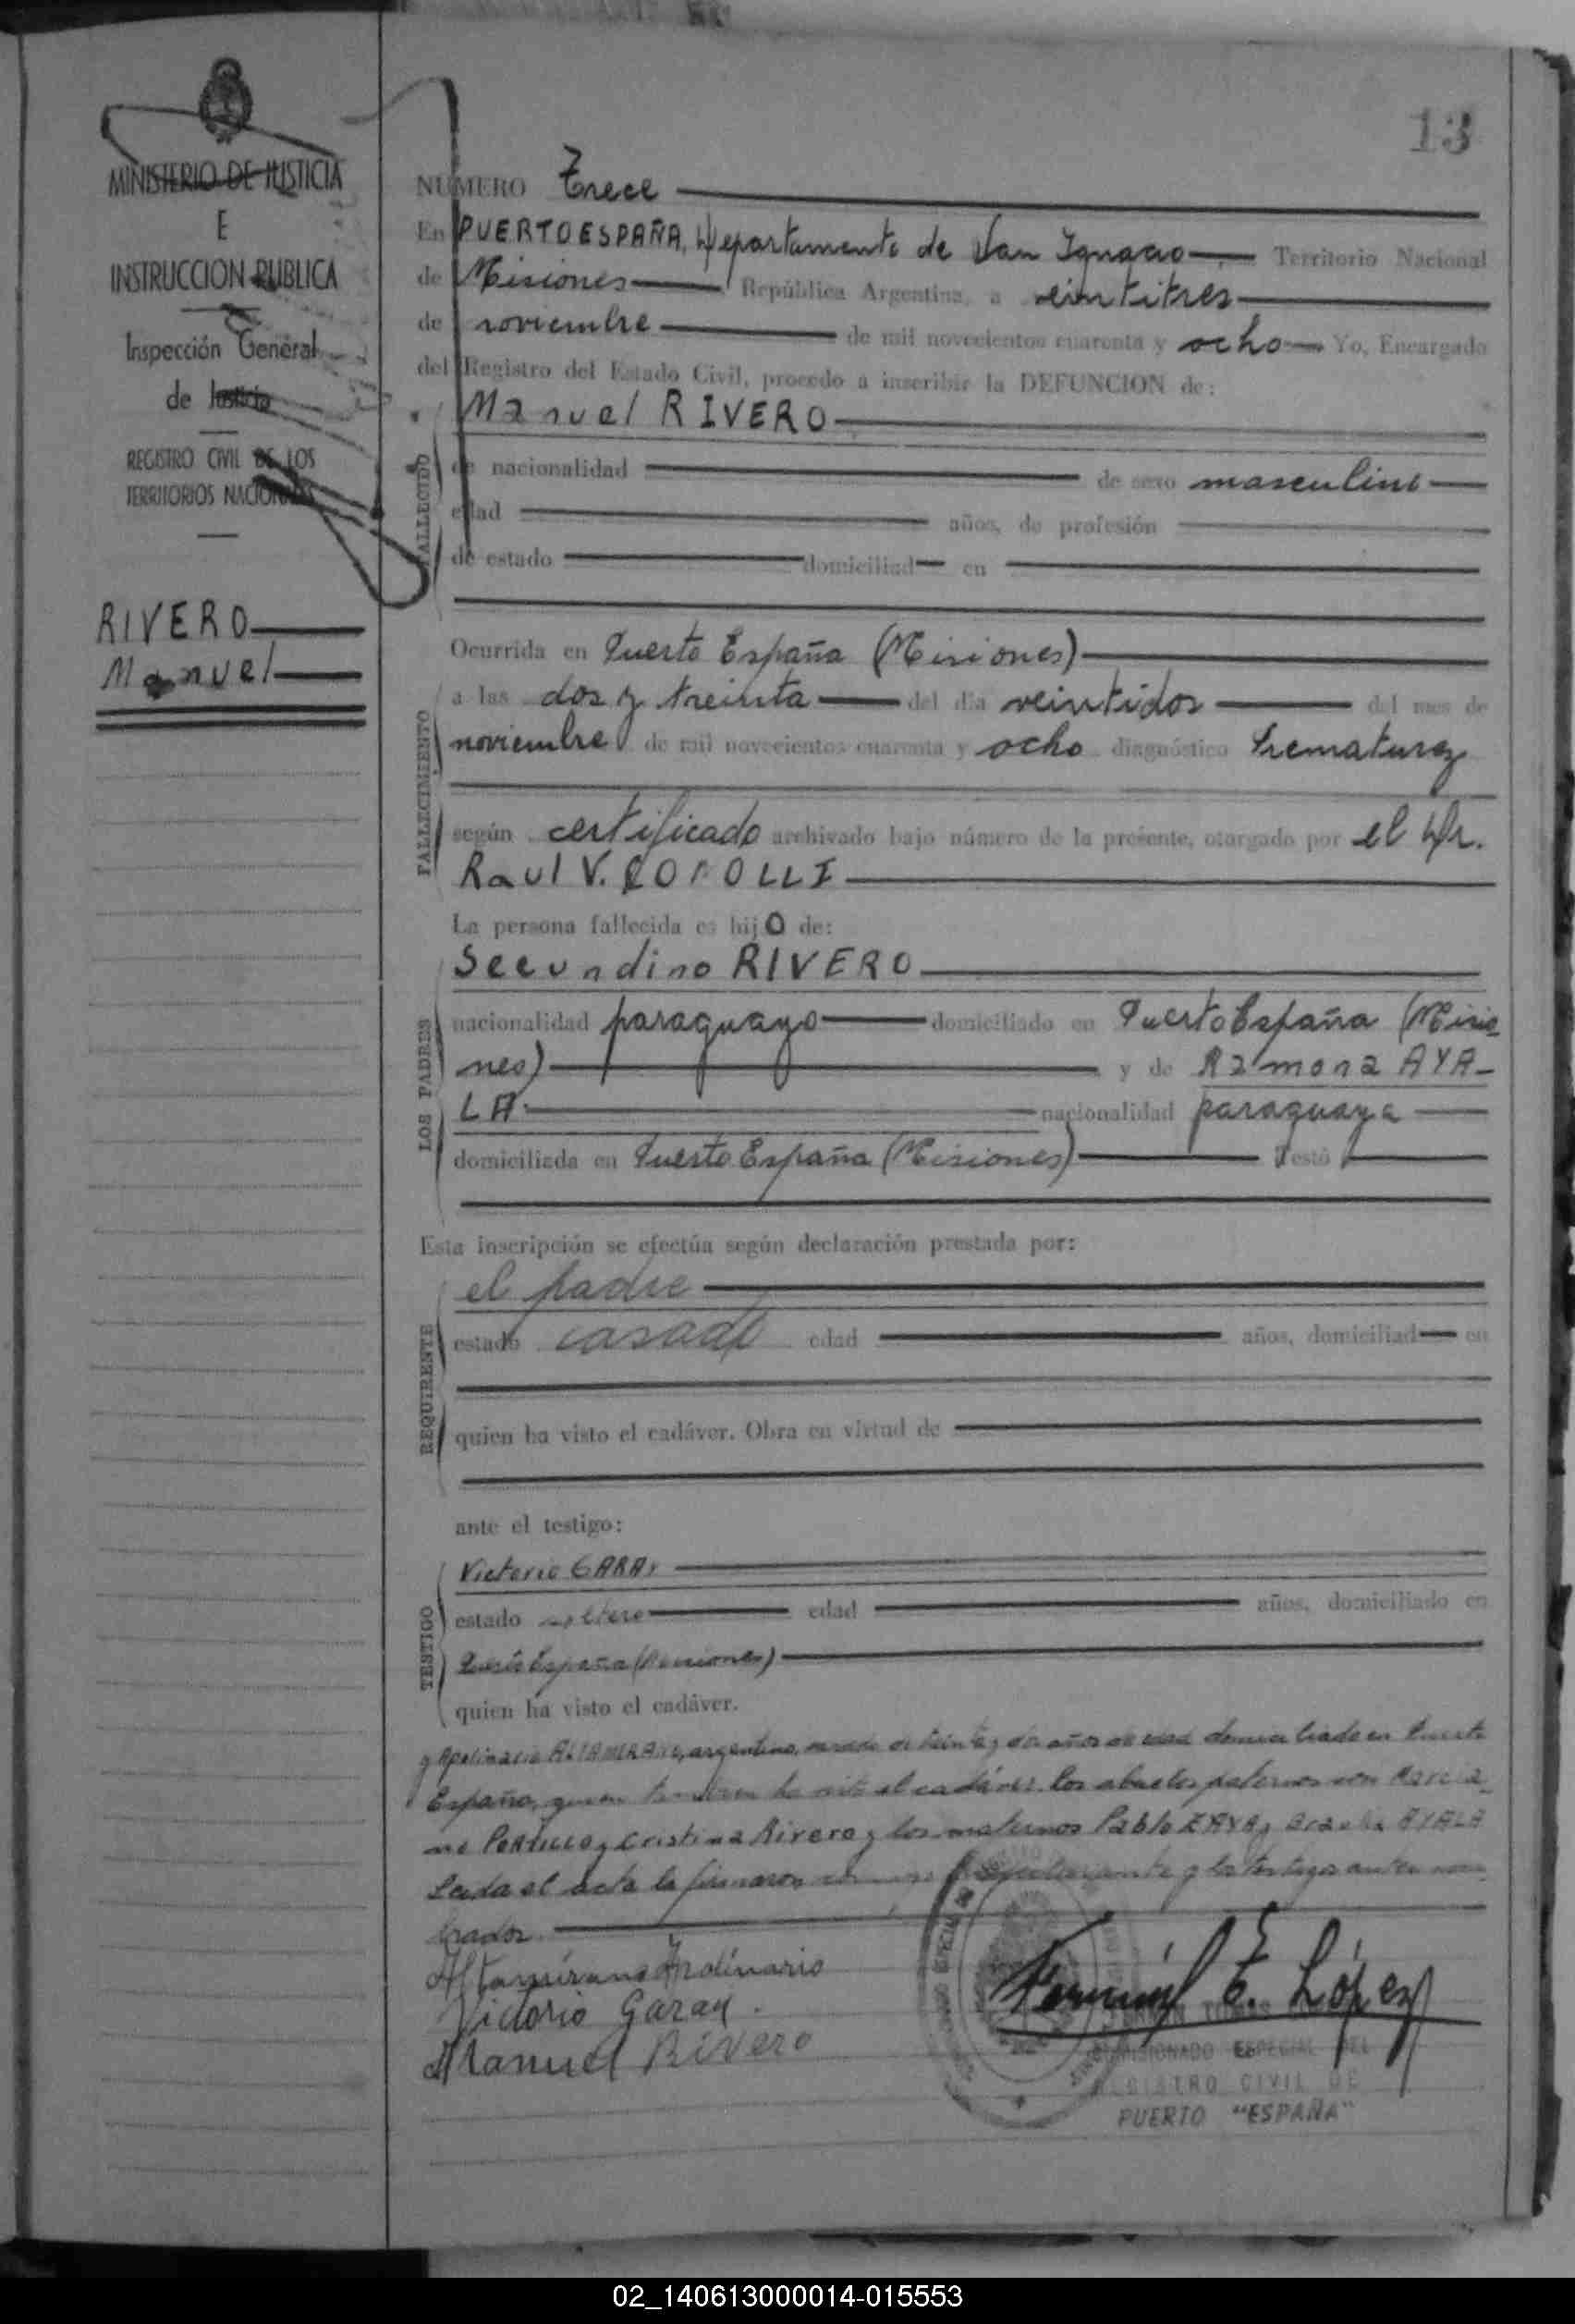 13
MINISTERIO DE JUSTICIA
E
INSTRUCCION PUBLICA
Inspección General
de Justicia
REGISTRO CIVIL DE LOS
TERRITORIOS NACIONALES
RIVERO
Manuel
NUMERO Trece
En PUERTO ESPAÑA, Departamento de San Ignacio Territorio Nacional
de Misiones República Argentina, a veintitres
de noviembre de mil novecientos cuarenta y ocho Yo, Encargado
del Registro del Estado Civil, procedo a inscribir la DEFUNCION de:
Manuel RIVERO
FALLECIDO
de nacionalidad de sexo masculino
edad años, de profesión
de estado domiciliad en
FALLECIMIENTO
Ocurrida en Puerto España (Misiones)
a las dos y treinta del día veintidos del mes de
noviembre de mil novecientos cuarenta y ocho diagnóstico Prematurez
según certificado archivado bajo número de la presente, otorgado por el Dr.
Raul V.
La persona fallecida es hijo de:
LOS PADRES
Secundino RIVERO
nacionalidad paraguayo domiciliado en Puerto España (Misio
nes) y de Ramona AYA-
LA nacionalidad paraguaya
domiciliada en Puerto España (Misiones) Testó
Esta inscripción se efectúa según declaración prestada por:
REQUIRENTE
el padre
estado casado edad años, domiciliad en
quien ha visto el cadáver. Obra en virtud de
ante el testigo:
TESTIGO
Victorio GARAY
estado soltero edad años, domiciliado en
Puerto España (Misiones)
quien ha visto el cadáver.
y Apolinario ALTAMIRANO, argentino, casado de treinta y dos años de edad domiciliado en Puerto
España, quien tambien ha visto el cadáver. Los abuelos paternos son Marcia
no PORTILLO y Cristina Rivero y los maternos Pablo y AYALA
Leida el acta la firmaron el y los testigos antes nom
brados.
Altamirano Apolinario
Victorio Garay.
Manuel Rivero
Fermín E. López
COMISIONADO ESPECIAL DEL
REGISTRO CIVIL DE
PUERTO "ESPAÑA"
02_140613000014-015553